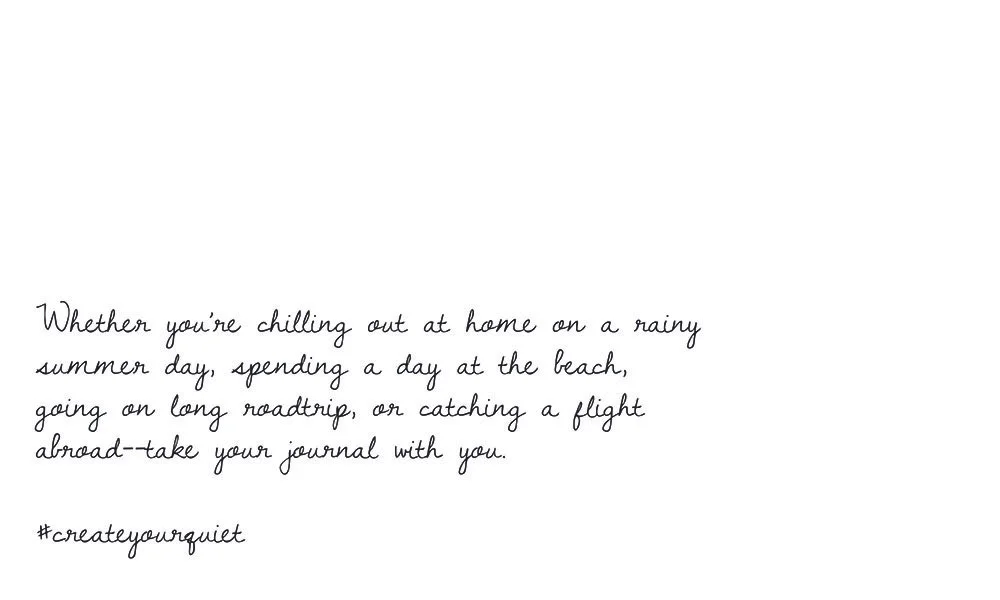 Whether you're chilling out at home on a rainy
summer day, spending a day at the beach,
going on long roadtrip, or catching a flight
abroad--take your journal with you.
#createyourquiet